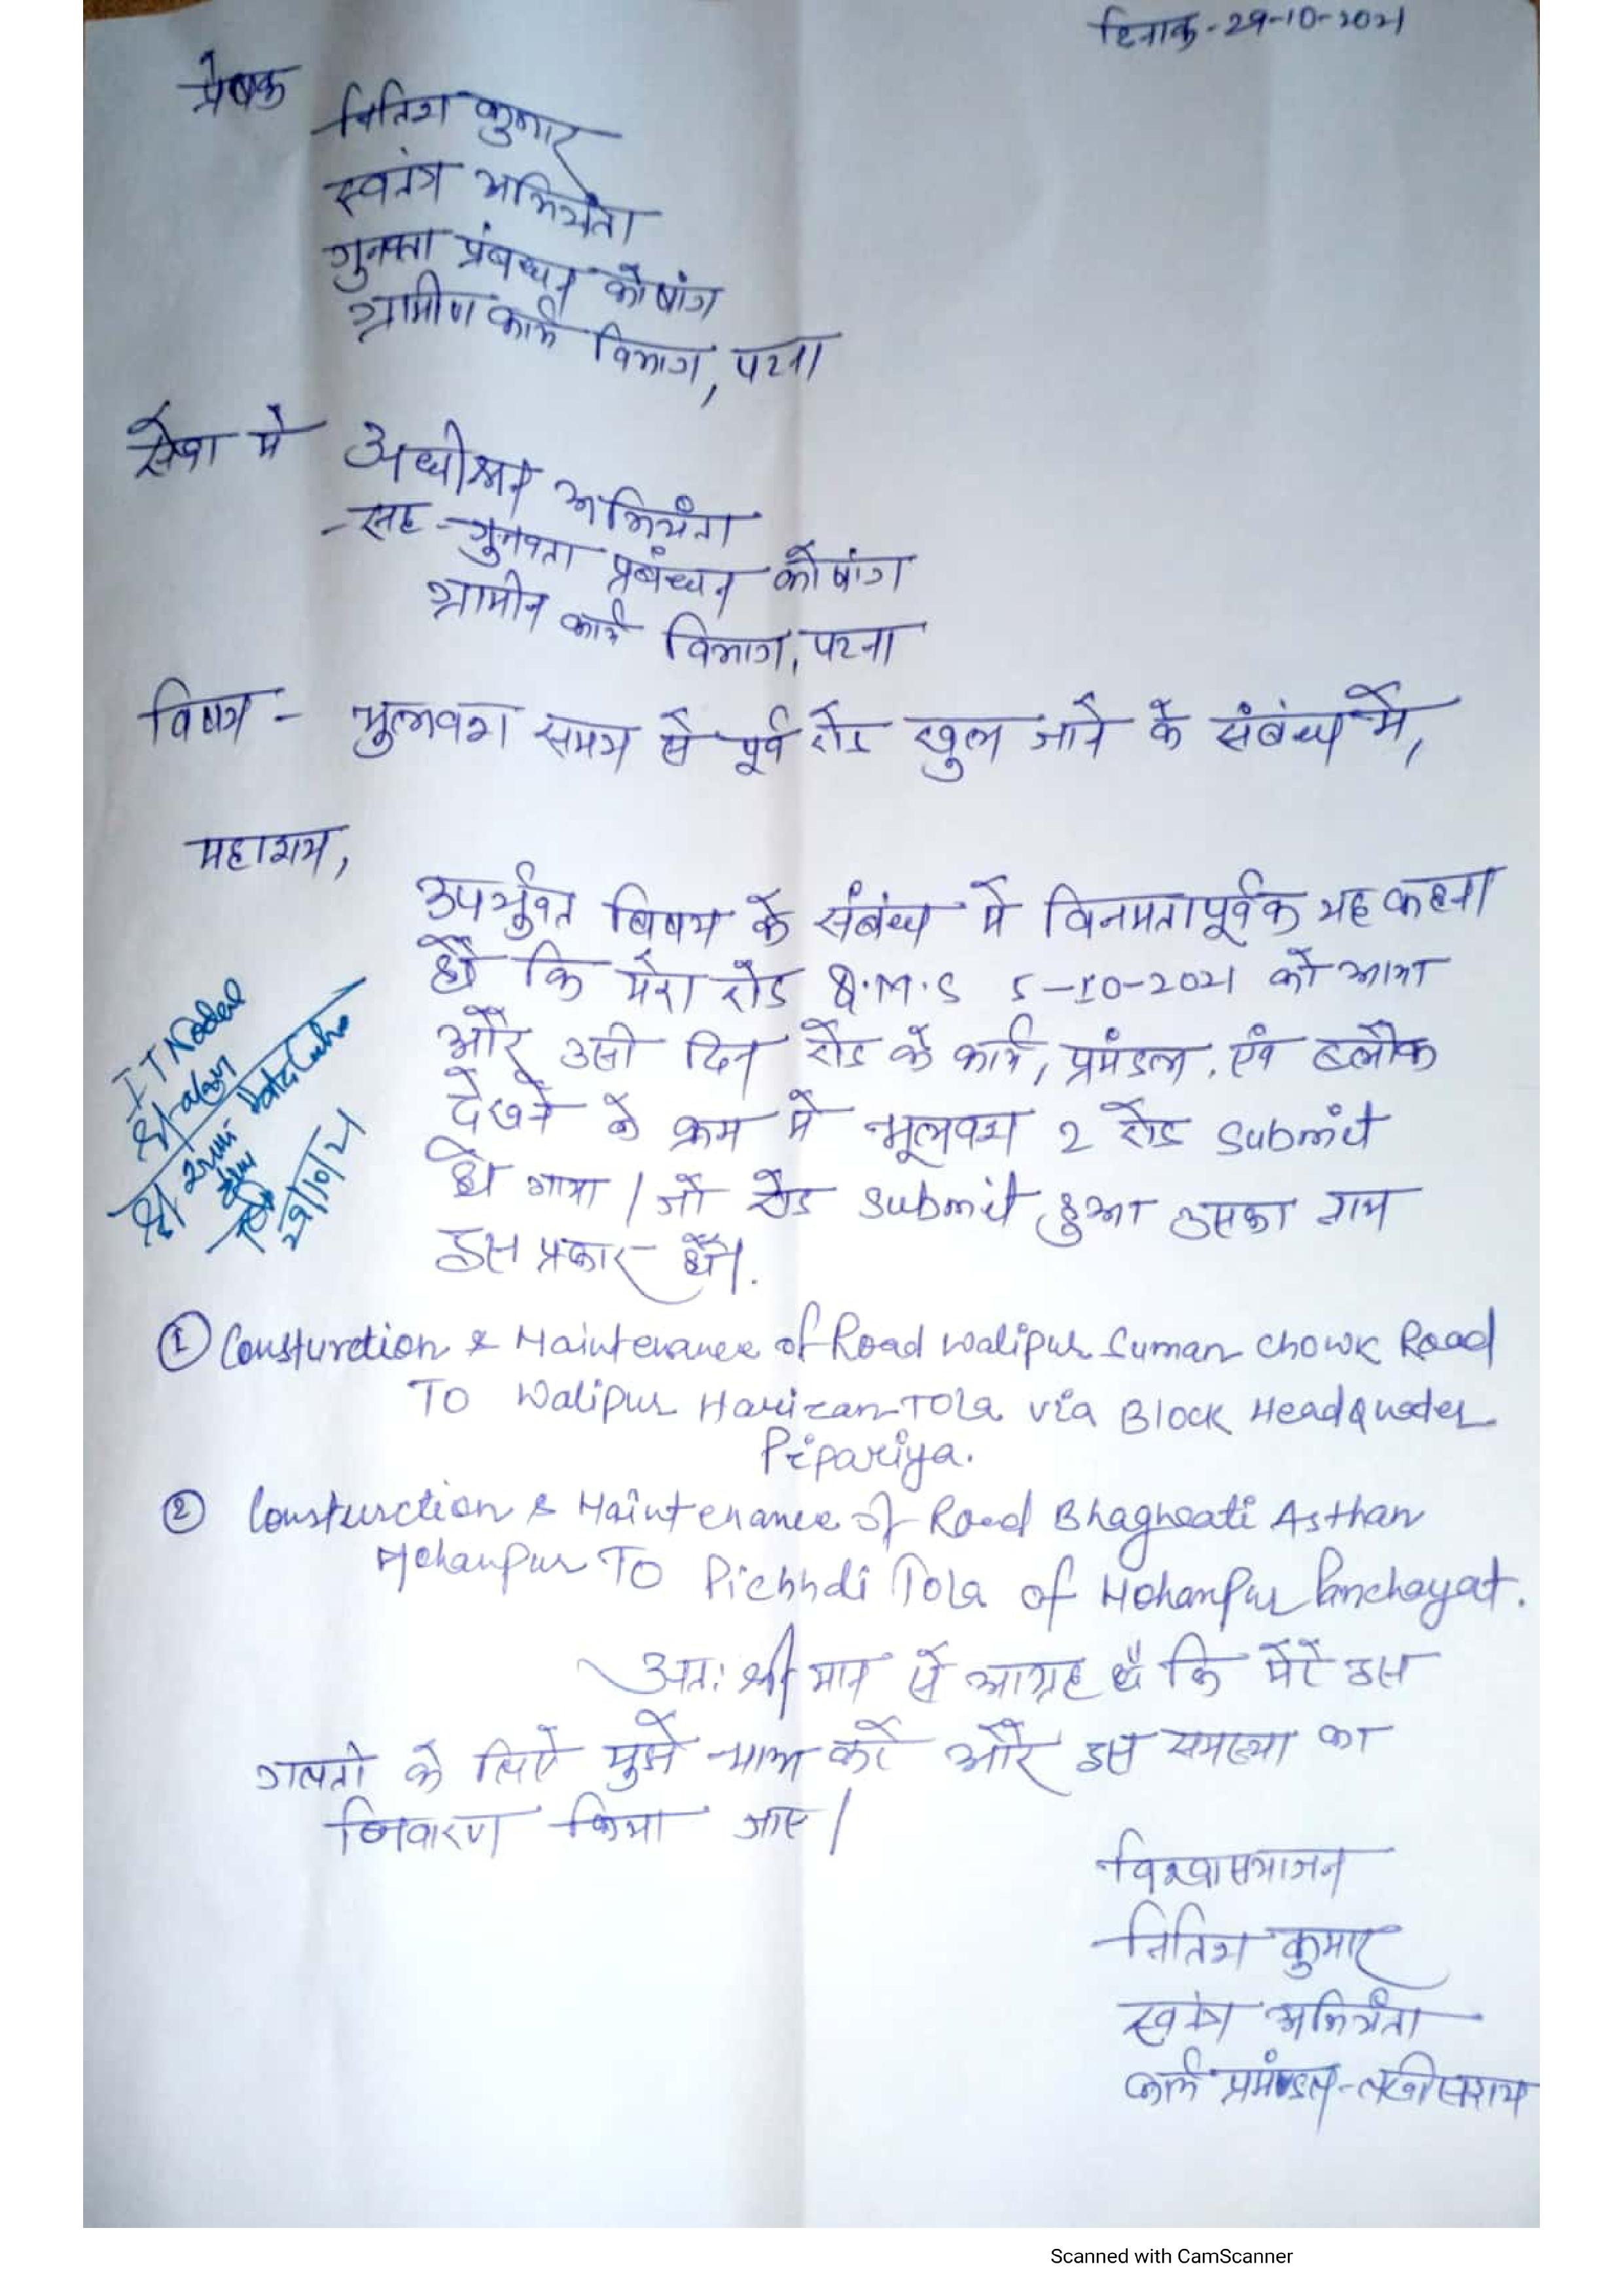 दिनांक-29-10-2021
प्रेषक
नितिश कुमार
स्वतंत्र अभियंता
गुनवता प्रंबधन कोषांग
ग्रामीण कार्य विभाग, पटना
सेवा मे
अधीक्षन अभियंता
-सह-गुनवता प्रबंधन कोषांग
ग्रामीन कार्य विभाग, पटना
विषय - भुलवश समय से पूर्व रोड खुल जाने के संबंध में,
महाशय,
उपर्युक्त विषय के संबंध मे विनमतापूर्वक यह कहना
है कि मेरा रोड Q.M.S 5-10-2021 को आया
और उसी दिन रोड के कार्य, प्रमंडल, एंव ब्लौक
देखने के क्रम मे भूलवश 2 रोड Submit
हो गाया। जो रोड Submit हुआ उसका नाम
इस प्रकार है।.
IT Nodal
Data
29/10/21
① Consturction & Maintenance of Road Walipur Suman Chowk Road
To Walipur Harizan Tola via Block Headquoder
Pipariya.
② Consturction & Maintenance of Road Bhagwati Asthan
Mohanpur To Pichhdi Tola of Mohanpur Panchayat.
अत: श्री मान से आग्रह है कि मेरे इस
गलती के लिऐ मुझे माफ करे और इस समस्या का
निवारण किया जाए।
विश्वासभाजन
नितिश कुमार
स्वतंत्र अभियंता
कार्य प्रमंडल-लखीसराय
Scanned with CamScanner